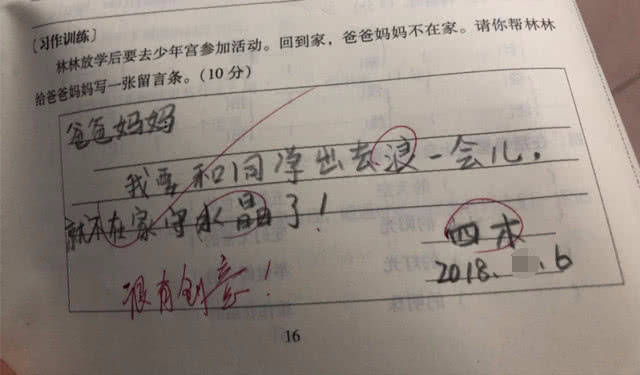 [习作训练]
林林放学后要去少年宫参加活动。回到家，爸爸妈妈不在家。请你帮林林
给爸爸妈妈写一张留言条。(10 分)
爸爸妈妈
我要和同学出去浪一会儿，
就不在家守水晶了！
四木
2018. .6
很有创意！
16